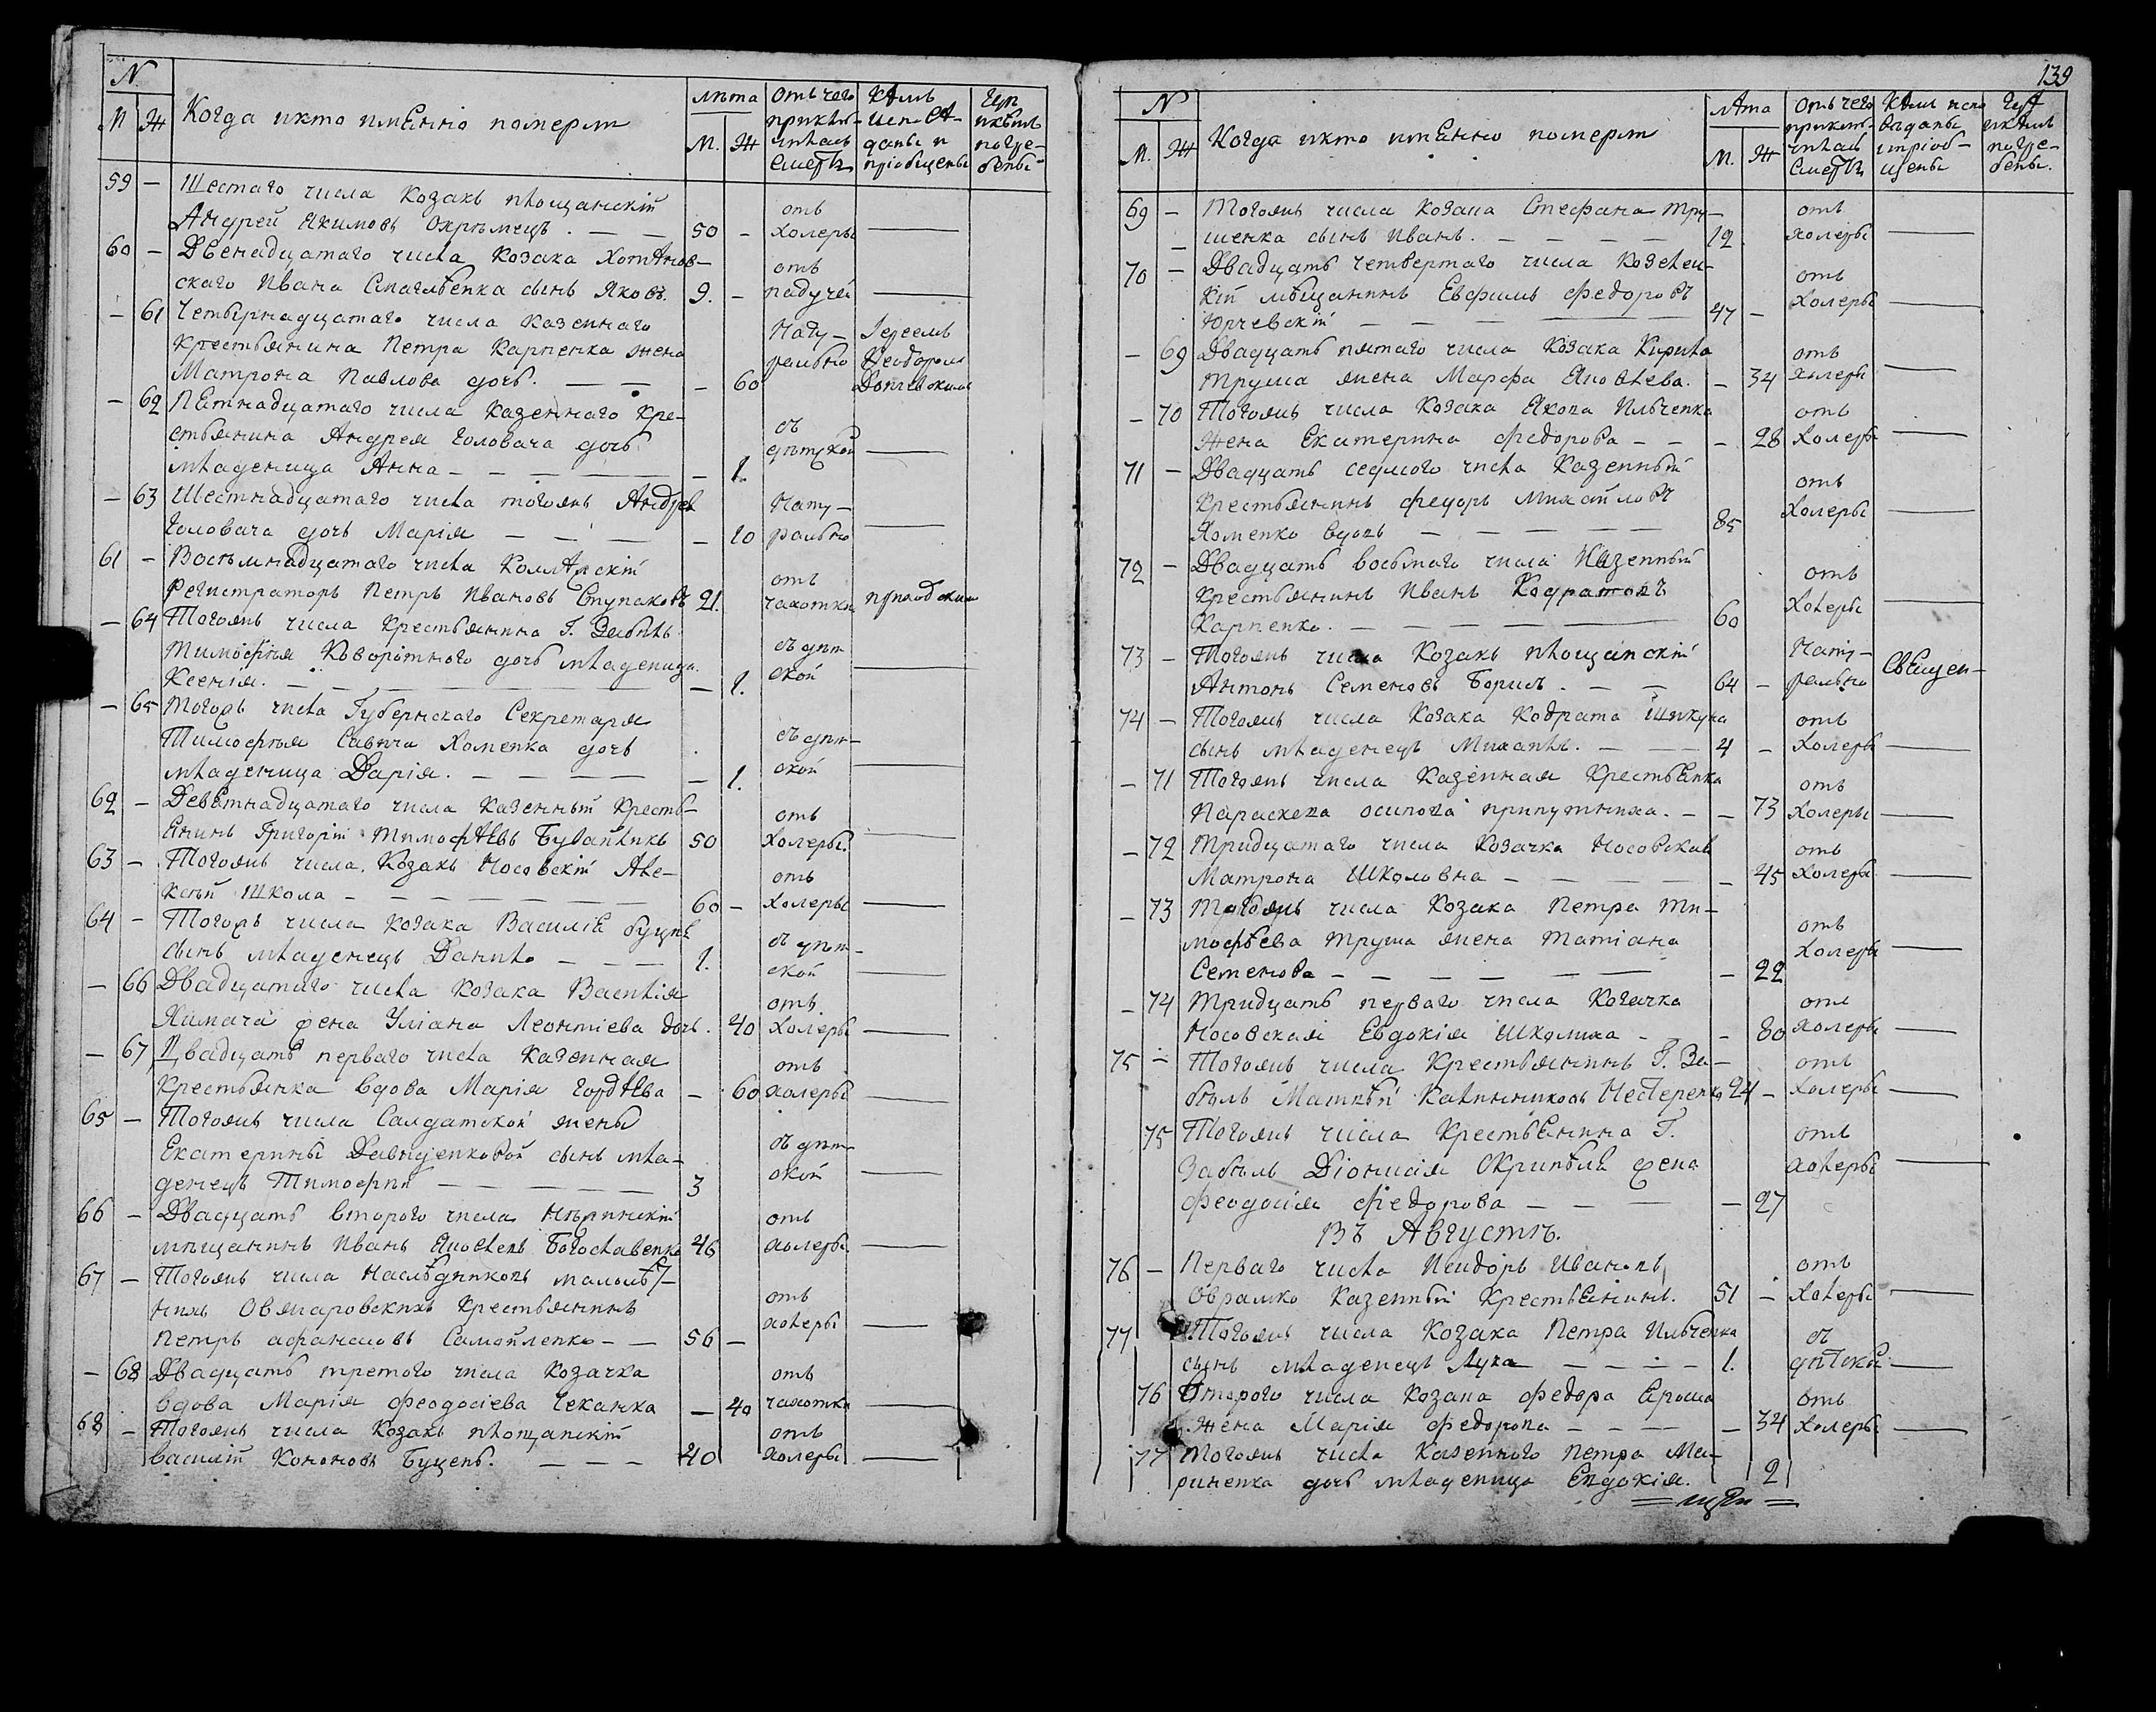 N
М Ж Когда икто имѣнно померт лѣта М. Ж Отъ чего приключилась смерть Кѣмъ исповѣданы и пріобщены Где икѣмъ погребены
59 — Шестаго числа Козакъ площанскій
Андрей Якимовъ Охрѣмецъ. — — 50 — отъ холеры —
60 — Двенадцатаго числа Козака Хотѣнов-
скаго Ивана сынъ Яковъ. 9. — отъ падучей —
— 61 Четырнадцатаго числа Казеннаго
Крестьянина Петра Карпенка жена
Матрона Павлова дочь. — — — 60 Нату- рально Іереемъ Феодоромъ
— 62 Пѣтнадцатаго числа Казеннаго Кре-
стьянина Андрея Головача дочь
младеница Анна — — — — 1. съ дѣтской —
— 63 Шестнадцатаго числа тогожъ Андрея
Головача дочь Марія — — — — 20 Нату- рально —
61 — Восѣмнадцатаго числа Коллѣжскій
Регистраторъ Петръ Ивановъ Ступаковъ 21. отъ чахотки
— 64 Тогожъ числа Крестьянина Г. Забѣлъ
Тимофѣя Коворотного дочь младеница
Ксенія. — — — — 1. съ дѣт ской —
— 65 Тогожъ числа Губернскаго Секретаря
Тимофѣя Савича Хоменка дочь
младеница Дарія. — — — — — 1. съ дѣт- ской —
62 — Девѣтнадцатаго числа Казенный Кресть-
ѣнинъ Григорій Тимофѣевъ 50 отъ Холеры. —
63 — Тогожъ числа, Козакъ Носовскій Але-
ксѣй Школа — — — — — 60 — отъ холеры —
64 — Тогожъ числа Козака Василіѣ Буцнѣ
сынъ младенецъ Данило — — — 1. съ дѣт- ской —
— 66 Двадцатаго числа Козака Василія
Якимача жена Уліана Леонтіева дочь. 40 отъ Холеры —
— 67 Двадцать перваго числа Казенная
Крестьянка вдова Марія Гордѣева — 60 отъ холеры —
65 — Тогожъ числа Салдатской жены
Екатерины Давиденковой сынъ мла-
денецъ Тимофій — — — — 3 съ дѣт ской —
66 — Двадцать второго числа Нѣжинскій
мѣщанинъ Иванъ Яковлевъ Богославенко 46 отъ холеры —
67 — Тогожъ числа Наслѣдниковъ малолѣт-
нихъ Овжаровскихъ Крестьянинъ
Петръ афанасіовъ Самойленко — — 56 — отъ холеры —
— 68 Двадцать третого числа Козачка
вдова Марія Феодосіева Чеканка — 40 отъ чахотки —
68 — Тогожъ числа Козакъ площанскій
василій Кононовъ Буценъ. — — — 40 отъ холеры —
139
N
М. Ж Когда икто имѣнно померт лѣта М. Ж Отъ чего приключилась смерть Кѣмъ исповѣданы ипріобщены Гдѣ икѣмъ погребены.
69 — Тогожъ числа Козака Стефана Тру-
шенка сынъ Иванъ. — — — — 12. отъ холеры —
70 — Двадцать четвертого числа Козелец-
кій мѣщанинъ Евфимъ Федоровъ
Юрчевскій — — — — — 47 — отъ Холеры —
— 69 Двадцать пятаго числа Козака Кирила
Труша жена Марфа Яковлева. — 34 отъ холеры —
— 70 Тогожъ числа Козака Якова Ильченка
Жена Екатерина Федорова — — — 28 отъ холеры —
71 — Двадцать седмого числа Казенный
Крестьянинъ Федоръ Михайловъ
Хоменко вдовъ — — — — 85 отъ Холеры —
72 — Двадцать восьмаго числа Казенный
Крестьянинъ Иванъ Кодратовъ
Карпенко. — — — — 60 отъ Холеры —
73 — Тогожъ числа Козакъ площанскій
Антонъ Семеновъ Борисъ. — — 64 — Нату- рально Свѣщен-
74 — Тогожъ числа Козака Кодрата Шикуна
сынъ младенецъ Михаилъ. — — 4 — отъ холеры —
— 71 Тогожъ числа Казенная Крестьѣнка
Параскева осипова припутниха. — — 73 отъ Холеры —
— 72 Тридцатаго числа Козачка Носовская
Матрона Школовна — — — — — 45 отъ холеры —
— 73 Тогожъ числа Козака Петра Ти-
мофѣева Труша жена Татіана
Семенова — — — — — 22 отъ Холеры —
— 74 Тридцать перваго числа Козачка
Носовская Евдокія Школиха — — 80 отъ холеры —
75 — Тогожъ числа Крестьянинъ Г. За-
бѣлъ Матвѣй Калинниковъ Нестеренко 24 — отъ холеры —
75 Тогожъ числа Крестьѣнина Г.
Забѣлъ Діонисія жена
Феодосія Федорова — — — — 27 отъ холеры —
Въ Августѣ.
76 — Перваго числа Исидоръ Ивановъ
Оврамко Казенный Крестьѣнинъ. 51 — отъ Холеры —
77 Тогожъ числа Козака Петра Ильченка
сынъ младенецъ Лука — — — — 1. съ дѣтской —
76 Второго числа Козака Федора Ероша
Жена Марія Федорова — — — — 34 отъ Холеры —
77 Тогожъ числа Казенного Петра Ма-
риненка дочь младеница Евдокія. 2